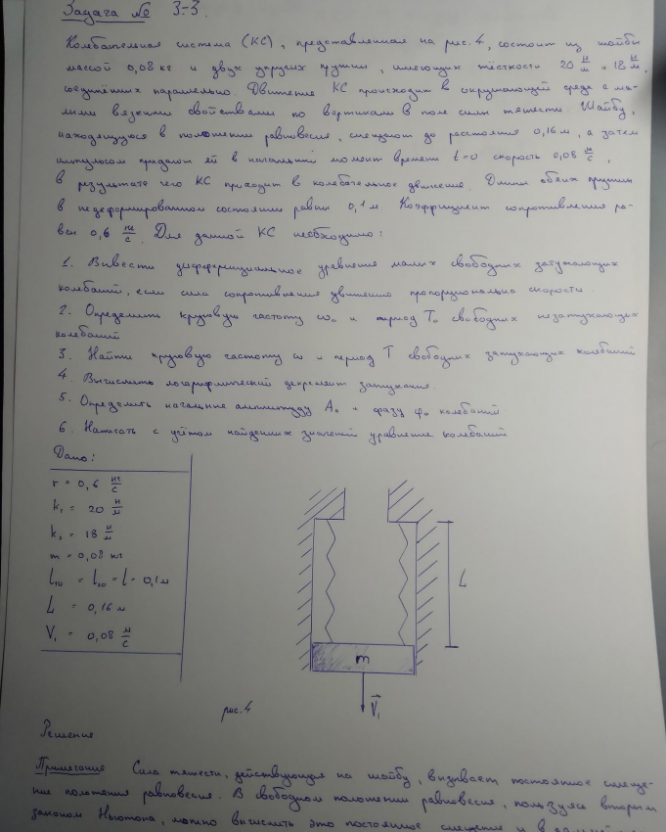 Задача № 3-3.
Колебательная система (КС), представленная на рис. 4, состоит из шайбы
массой 0,08 кг и двух упругих пружин, имеющих жёсткости 20 Н/м и 18 Н/м,
соединённых параллельно. Движение КС происходит в окружающей среде с ма-
лыми вязкими свойствами по вертикали в поле силы тяжести. Шайбу,
находящуюся в положении равновесия, смещают до расстояния 0,16 м, а затем
импульсом придают ей в начальный момент времени t=0 скорость 0,08 м/с,
в результате чего КС приходит в колебательное движение. Длины обеих пружин
в недеформированном состоянии равны 0,1 м. Коэффициент сопротивления ра-
вен 0,6 кг/с. Для данной КС необходимо:
1. Вывести дифференциальное уравнение малых свободных затухающих
колебаний, если сила сопротивления движению пропорциональна скорости.
2. Определить круговую частоту ω₀ и период T₀ свободных незатухающих
колебаний
3. Найти круговую частоту ω и период T свободных затухающих колебаний
4. Вычислить логарифмический декремент затухания.
5. Определить начальные амплитуду A₀ и фазу φ₀ колебаний
6. Написать с учётом найденных значений уравнение колебаний
Дано:
r = 0,6 кг/с
k₁ = 20 Н/м
k₂ = 18 Н/м
m = 0,08 кг
l₁₀ = l₂₀ = l = 0,1 м
L = 0,16 м
V₁ = 0,08 м/с
L
m
V₁
рис. 4
Решение
Примечание Сила тяжести, действующая на шайбу, вызывает постоянное смеще-
ние положения равновесия. В свободном положении равновесия, пользуясь вторым
законом Ньютона, можно вычислить это постоянное смещение и в